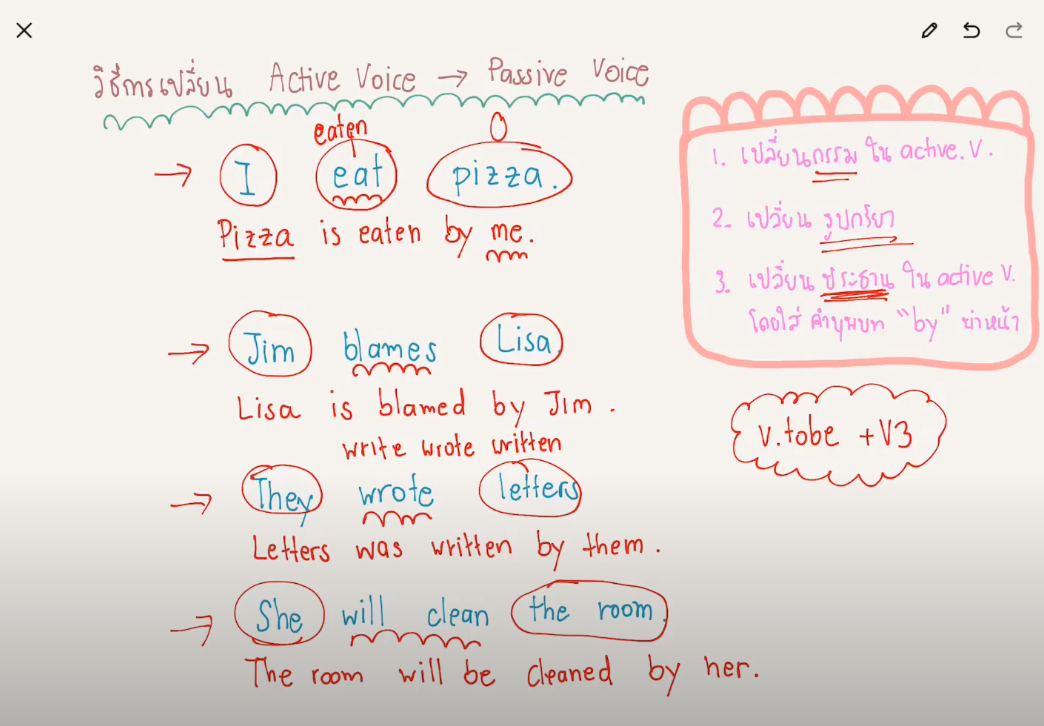 วิธีการเปลี่ยน Active Voice → Passive Voice
eaten O
→ I eat pizza.
Pizza is eaten by me.
→ Jim blames Lisa.
Lisa is blamed by Jim.
write wrote written
→ They wrote letters
Letters was written by them.
→ She will clean the room.
The room will be cleaned by her.
1. เปลี่ยนกรรม ใน active. V.
2. เปลี่ยน รูปกริยา
3. เปลี่ยน ประธาน ใน active V.
โดยใส่ คำบุพบท "by" นำหน้า
v.tobe +V3